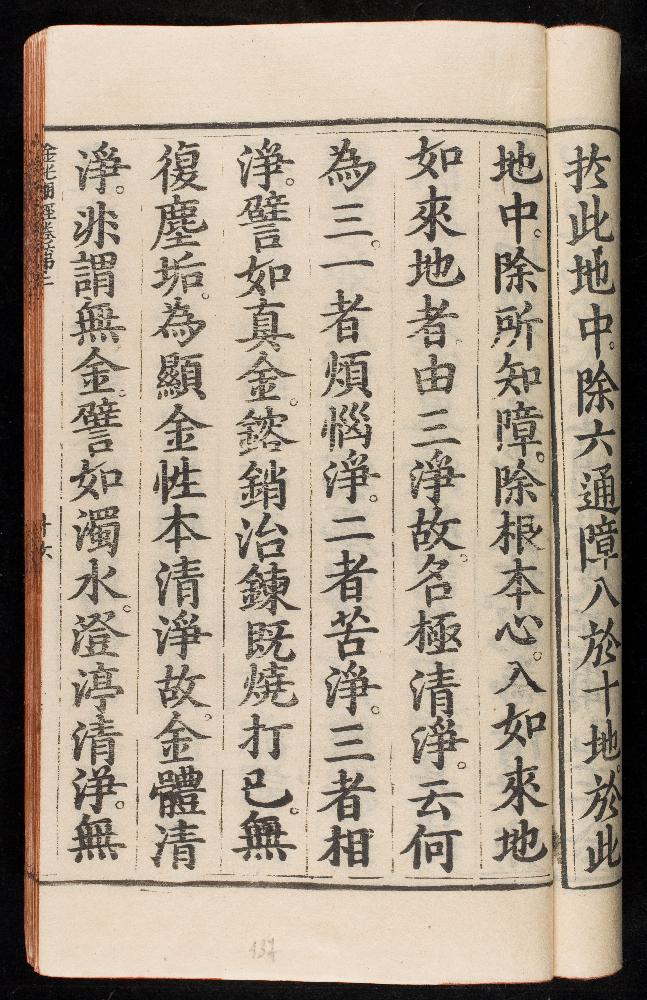 於此地中。除六通障入於十地。於此
地中。除所知障。除根本心。入如來地
如來地者由三淨故。名極清淨。云何
為三。一者煩惱淨。二者苦淨。三者相
淨。譬如真金。鎔銷冶鍊既燒打已。無
復塵垢。為顯金性本清淨故。金體清
淨。非謂無金。譬如濁水。澄渟清淨。無
金光明經卷第二
十六
137